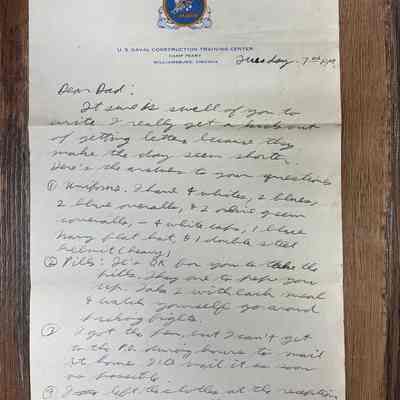 U. S. NAVAL CONSTRUCTION TRAINING CENTER
CAMP PEARY
WILLIAMSBURG, VIRGINIA
Tuesday. 7:00 P.M.
Dear Dad:
It sure is swell of you to
write. I really get a kick out
of getting letters because they
make the day seem shorter.
Here's the answers to your questions
① Uniforms: I have 4 whites, 2 blues,
2 blue overalls, & 2 olive green
coveralls, – 4 white caps, 1 blue
navy flat hat, & 1 double steel
helmut (heavy)
② Pills: It's OK for you to take the
pills. They are to pep you
up. Take 2 with each meal
& watch yourself go around
picking fights.
③ I got the pen, but I can't get
to the P.O. during hours to mail
it home. I'll mail it as soon
as possible.
④ I left the clothes at the reception